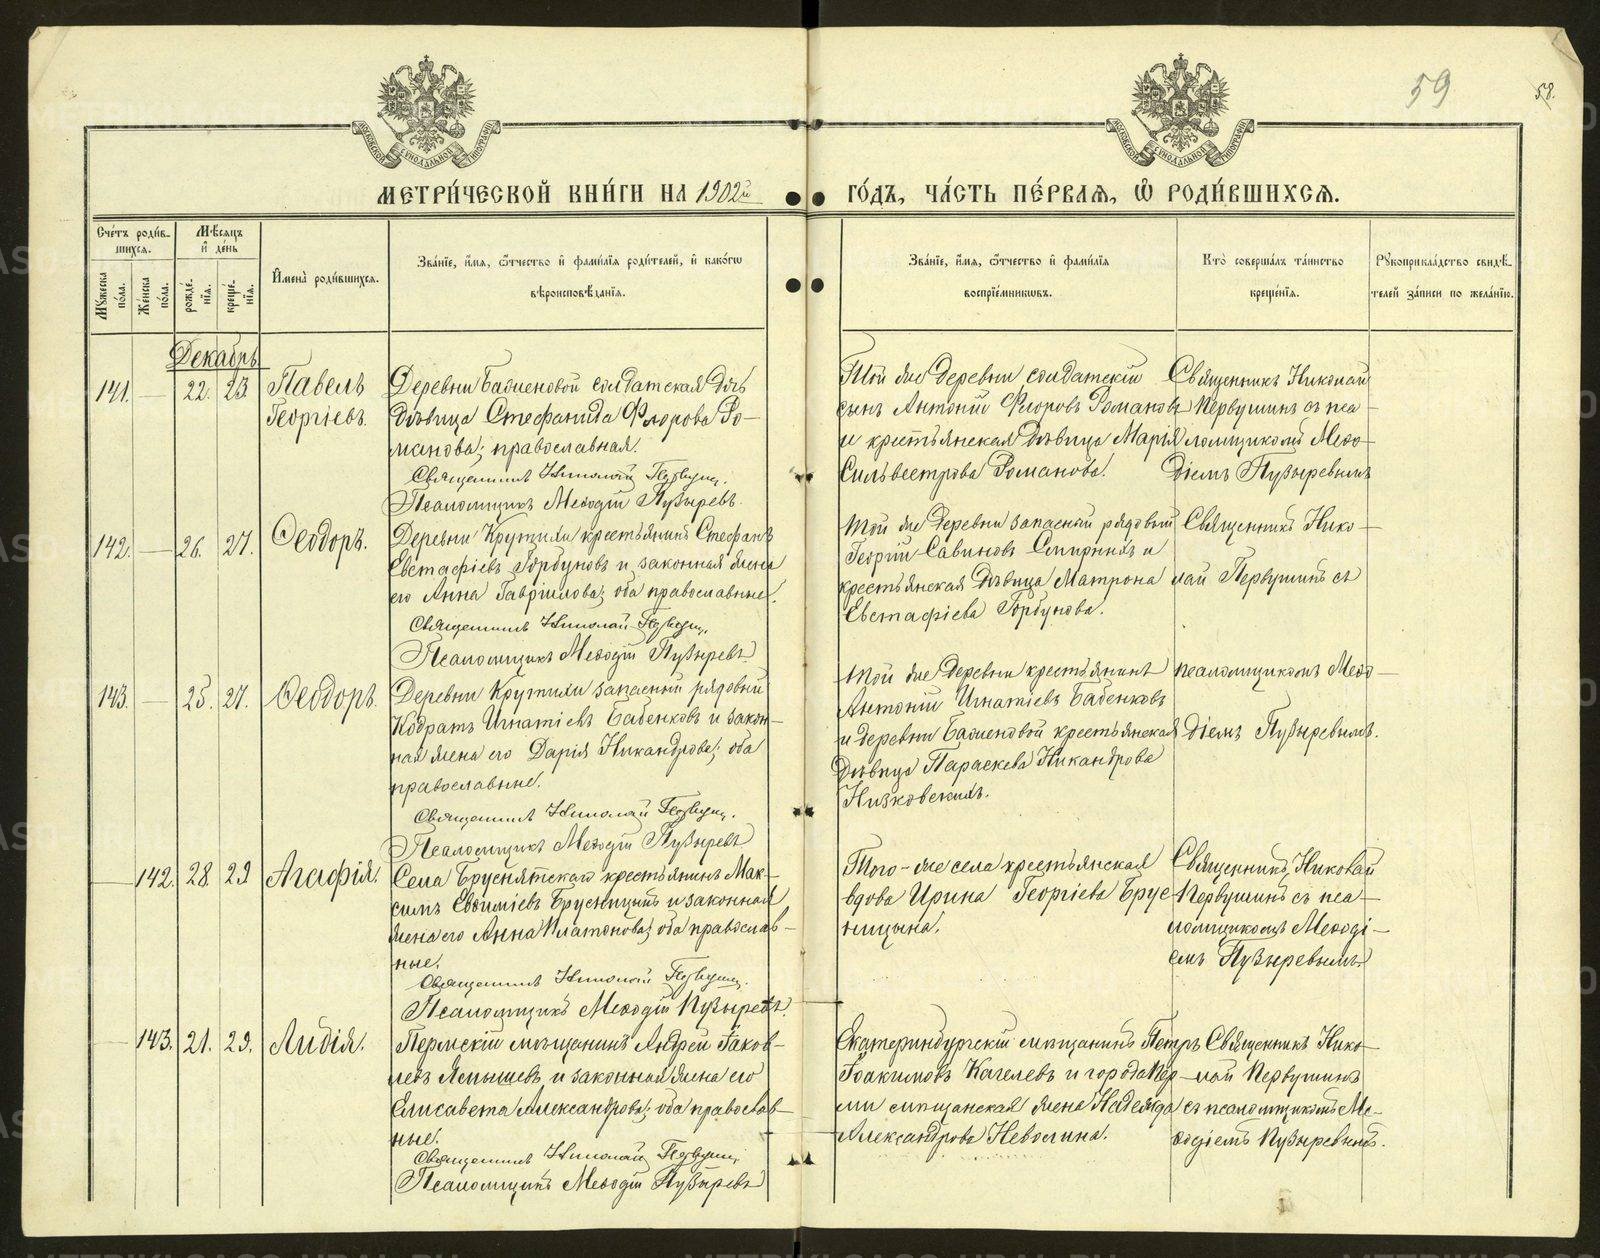 59
58.
МЕТРИ́ЧЕСКОЙ КНИ́ГИ НА 1902й
ГО́ДЪ, ЧА́СТЬ ПЕ́РВАЯ, Ѡ РОДИ́ВШИХСЯ.
Сче́тъ роди́в-
шихся.
Мꙋ́жеска по́ла.
Же́нска по́ла.
Мѣ́сяцъ
и҆ де́нь
рожде́нїя.
креще́нїя.
И҆мена̀ роди́вшихся.
Зва́нїе, и҆́мя, ѻ҆́тчество и҆ фами́лїя роди́телей, и҆ како́гѡ
вѣроисповѣ́данїя.
Зва́нїе, и҆́мя, ѻ҆́тчество и҆ фами́лїя
воспрїе́мникѡвъ.
Кто̀ соверша́лъ та́инство
креще́нїя.
Рꙋкоприкла́дство свидѣ́-
телей за́писи по жела́нїю.
Декабрь
141.
22. 23.
Павелъ
Георгіевъ.
Деревни Баженовой солдатская дочь
дѣвица Стефанида Флорова Ро-
манова; православная.
Священникъ Николай Первушин.
Псаломщикъ Меѳодій Пузыревъ.
Той же деревни солдатскій
сынъ Антоній Флоровъ Романовъ
и крестьянская дѣвица Марія
Сильвестрова Романова.
Священникъ Николай
Первушинъ съ пса-
ломщикомъ Меѳо-
діемъ Пузыревымъ
142.
26. 27.
Ѳеодоръ.
Деревни Крутихи крестьянинъ Стефанъ
Евстафіевъ Горбуновъ и законная жена
его Анна Гавріилова; оба православные.
Священникъ Николай Первушин.
Псаломщикъ Меѳодій Пузыревъ
Той же деревни запасный рядовый
Георгій Савиновъ Смирныхъ и
крестьянская дѣвица Матрона
Евстафіева Горбунова.
Священникъ Нико-
лай Первушинъ съ
143.
25. 27.
Ѳеодоръ.
Деревни Крутихи запасный рядовый
Кодратъ Игнатіевъ Бабенковъ и закон-
ная жена его Дарія Никандрова; оба
православные.
Священникъ Николай Первушин.
Псаломщикъ Меѳодій Пузыревъ
Той же деревни крестьянинъ
Антоній Игнатіевъ Бабенковъ
и деревни Баженовой крестьянская
дѣвица Параскева Никандрова
Низковскихъ.
псаломщикомъ Меѳо-
діемъ Пузыревымъ.
142.
28. 29
Агафія.
Села Бруснятскаго крестьянинъ Мак-
симъ Евѳиміевъ Брусницынъ и законная
жена его Анна Платонова; оба православ-
ные.
Священникъ Николай Первушин.
Псаломщикъ Меѳодій Пузыревъ.
Того-же села крестьянская
вдова Ирина Георгіева Брус-
ницына.
Священникъ Николай
Первушинъ съ пса-
ломщикомъ Меѳоді-
емъ Пузыревымъ.
143.
21. 29.
Лидія.
Пермскій мѣщанинъ Андрей Іаков-
левъ Ямышевъ и законная жена его
Елисавета Александрова; оба православ-
ные.
Священникъ Николай Первушин.
Псаломщикъ Меѳодій Пузыревъ
Екатеринбургскій мѣщанинъ Петръ
Іоакимовъ Кагелевъ и города Пер-
ми мѣщанская жена Надежда
Александрова Неволина.
Священникъ Нико-
лай Первушинъ
съ псаломщикомъ Ме-
ѳодіемъ Пузыревымъ.